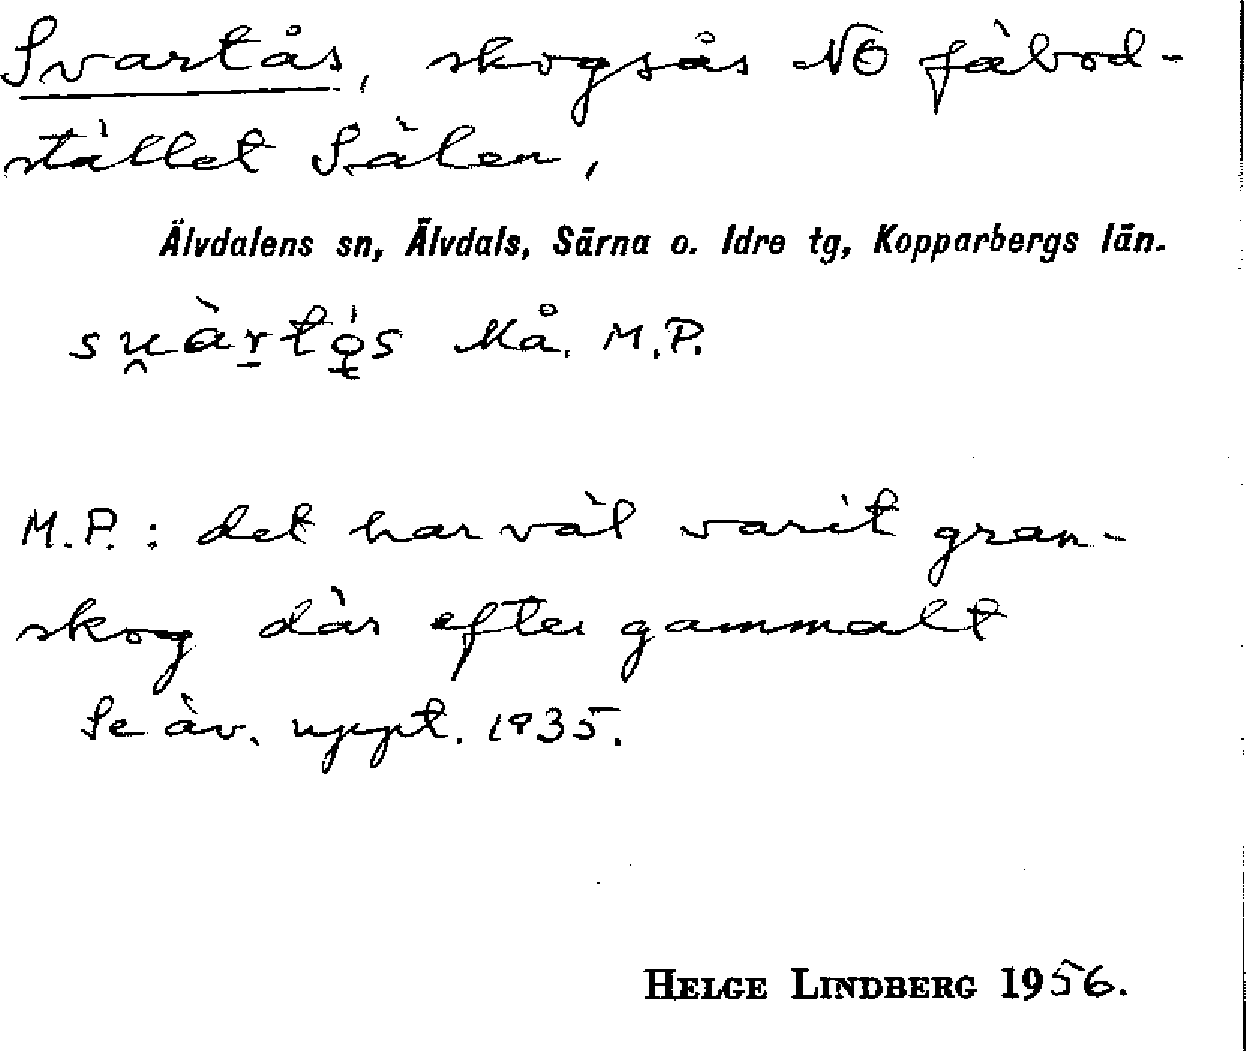 Svartås, skogsås NÖ fäbod-
stället Sälen,
Älvdalens sn, Älvdals, Särna o. Idre tg, Kopparbergs län.
Må. M.P.
M.P.: det har väl varit gran-
skog där efter gammalt
Se äv. uppt. 1935.
HELGE LINDBERG 1956.